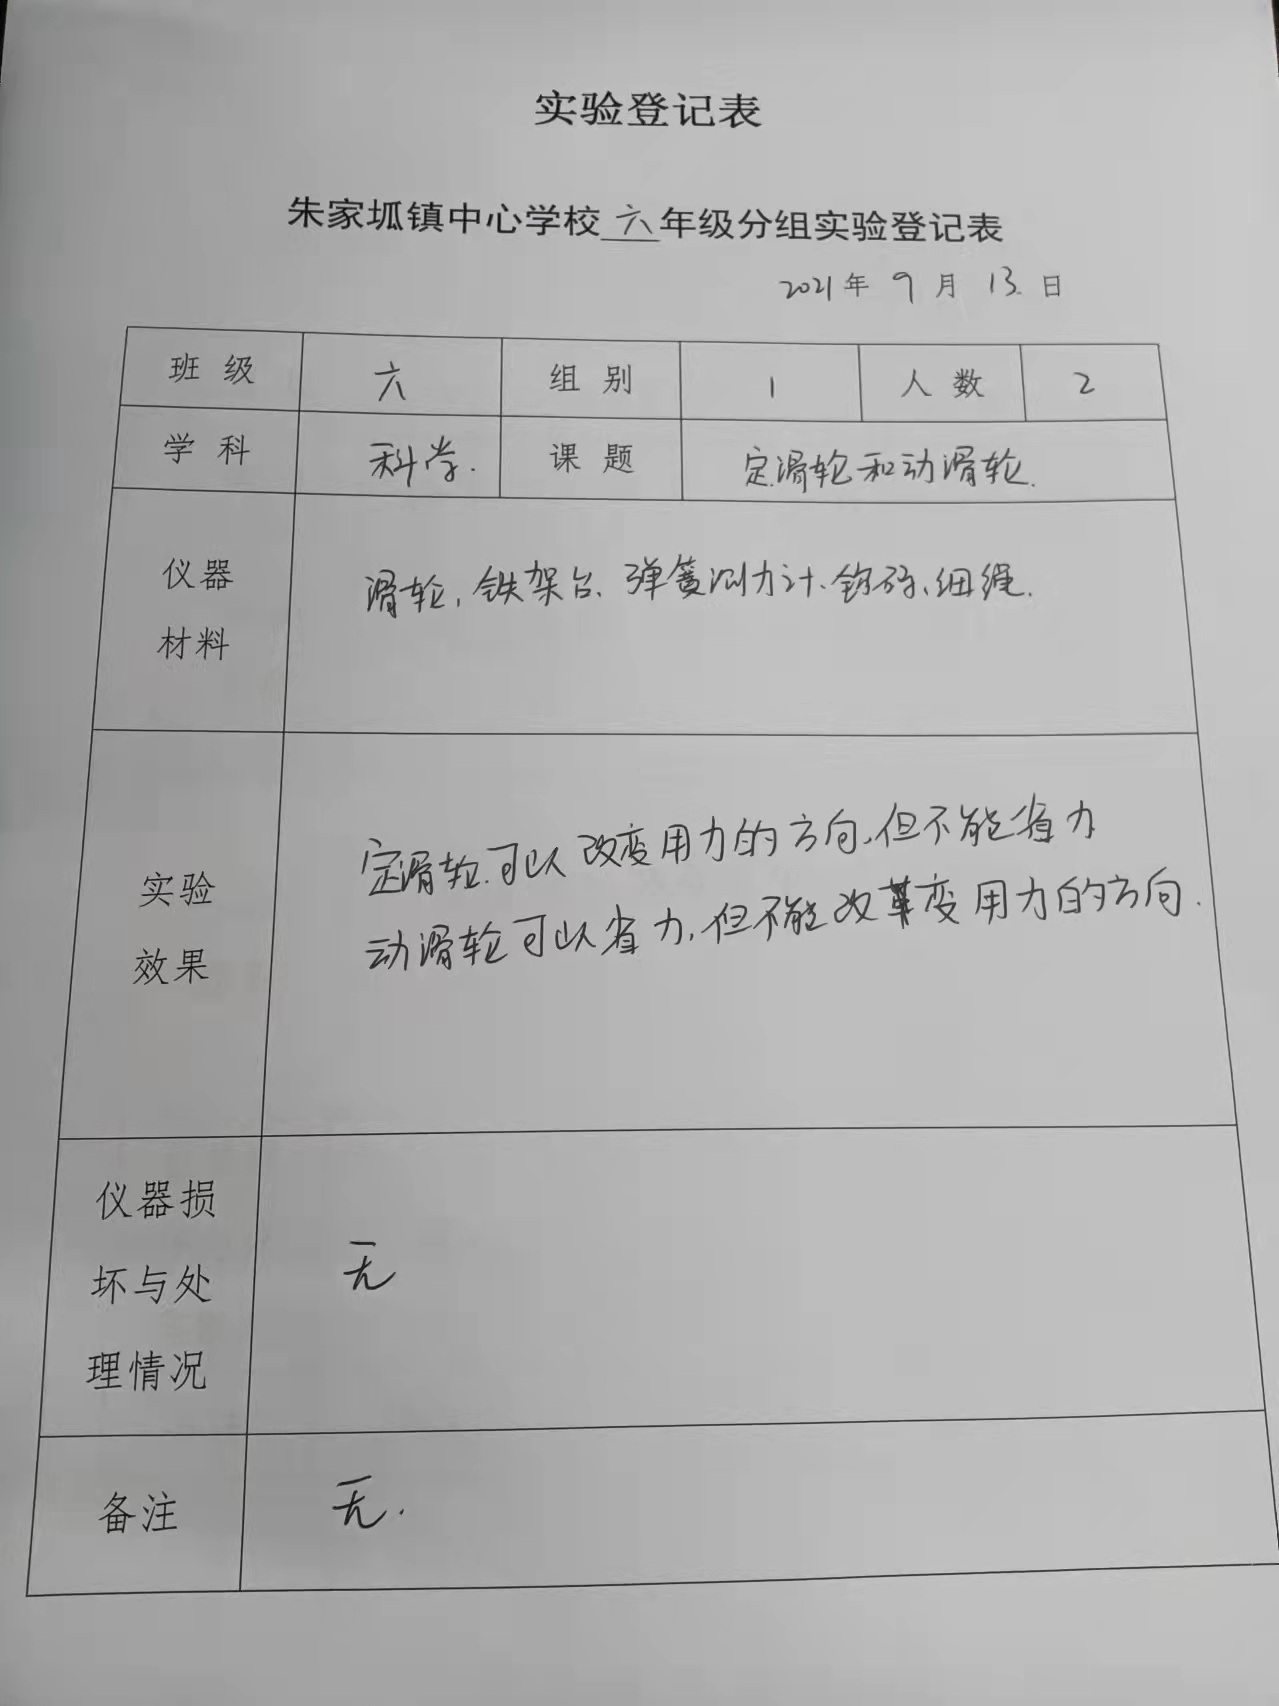 实验登记表
朱家坬镇中心学校六年级分组实验登记表
2021年9月13日
班级 六 组别 1 人数 2
学科 科学. 课题 定滑轮和动滑轮.
仪器
材料
滑轮、铁架台、弹簧测力计、钩码、细绳.
实验
效果
定滑轮可以改变用力的方向,但不能省力
动滑轮可以省力,但不能改变用力的方向.
仪器损
坏与处
理情况
无
备注
无.